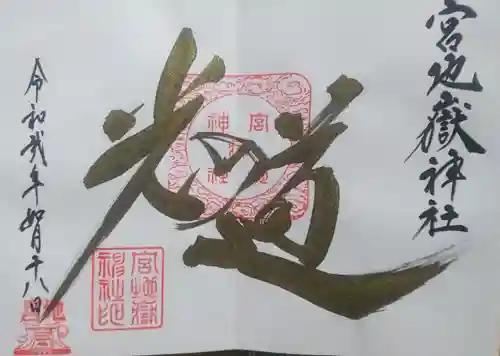 宮地嶽神社
光の道
令和弐年如月十八日
宮地嶽神社
宮地嶽神社印